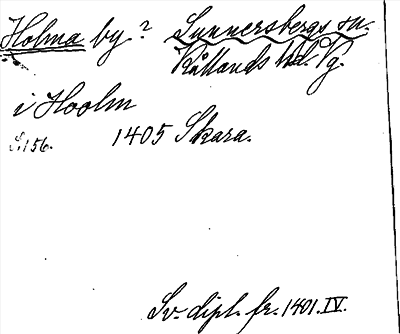 Holma by? Sunnersbergs sn.
Kållands hd. Vg.
i Hoolm
S. 156. 1405 Skara.
Sv. dipl. fr. 1401. IV.